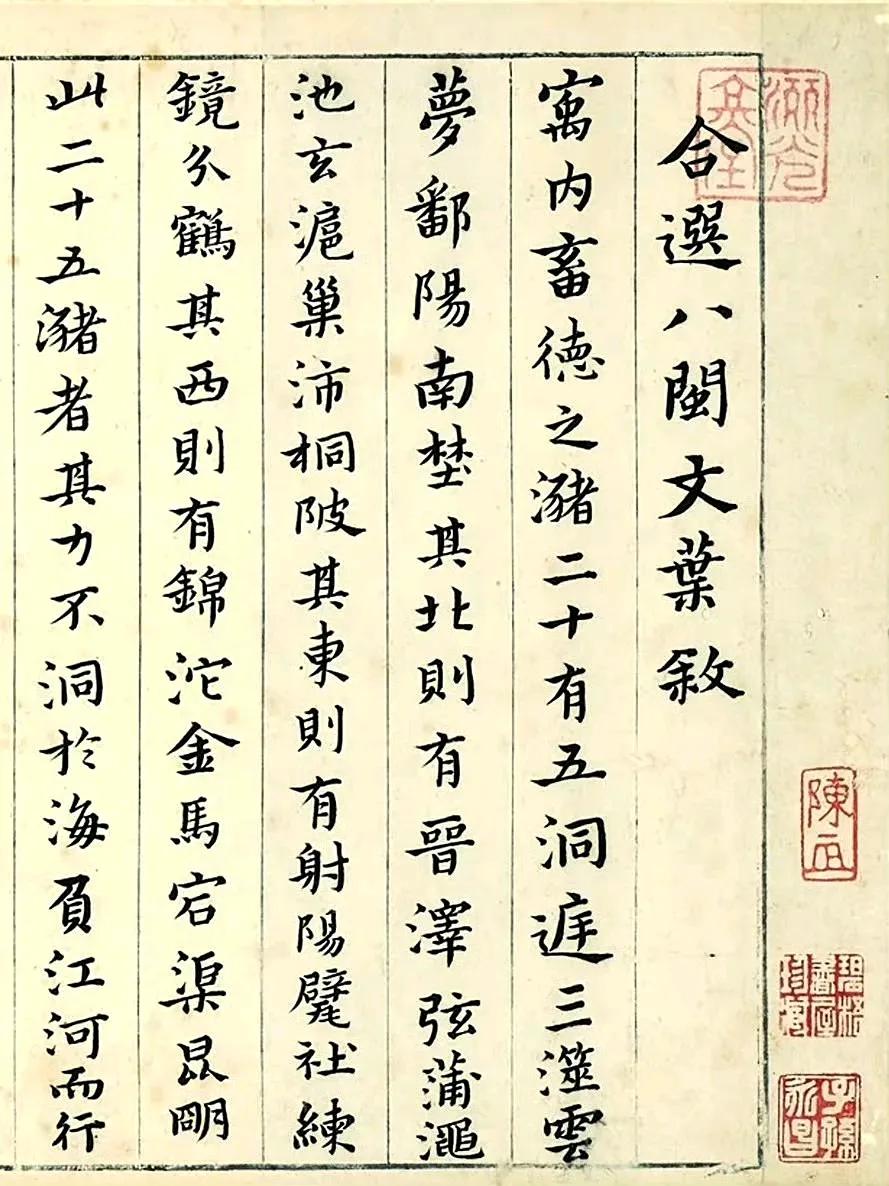 合選八閩文葉敘
寓內畜德之瀦二十有五洞遅三澨雲
夢鄱陽南埜其北則有晉澤弦蒲澠
池玄滬巢沛桐陂其東則有射陽甓社練
鏡分鶴其西則有錦沱金馬宕渠昆明
此二十五瀦者其力不洞於海負江河而行
子孫永昌